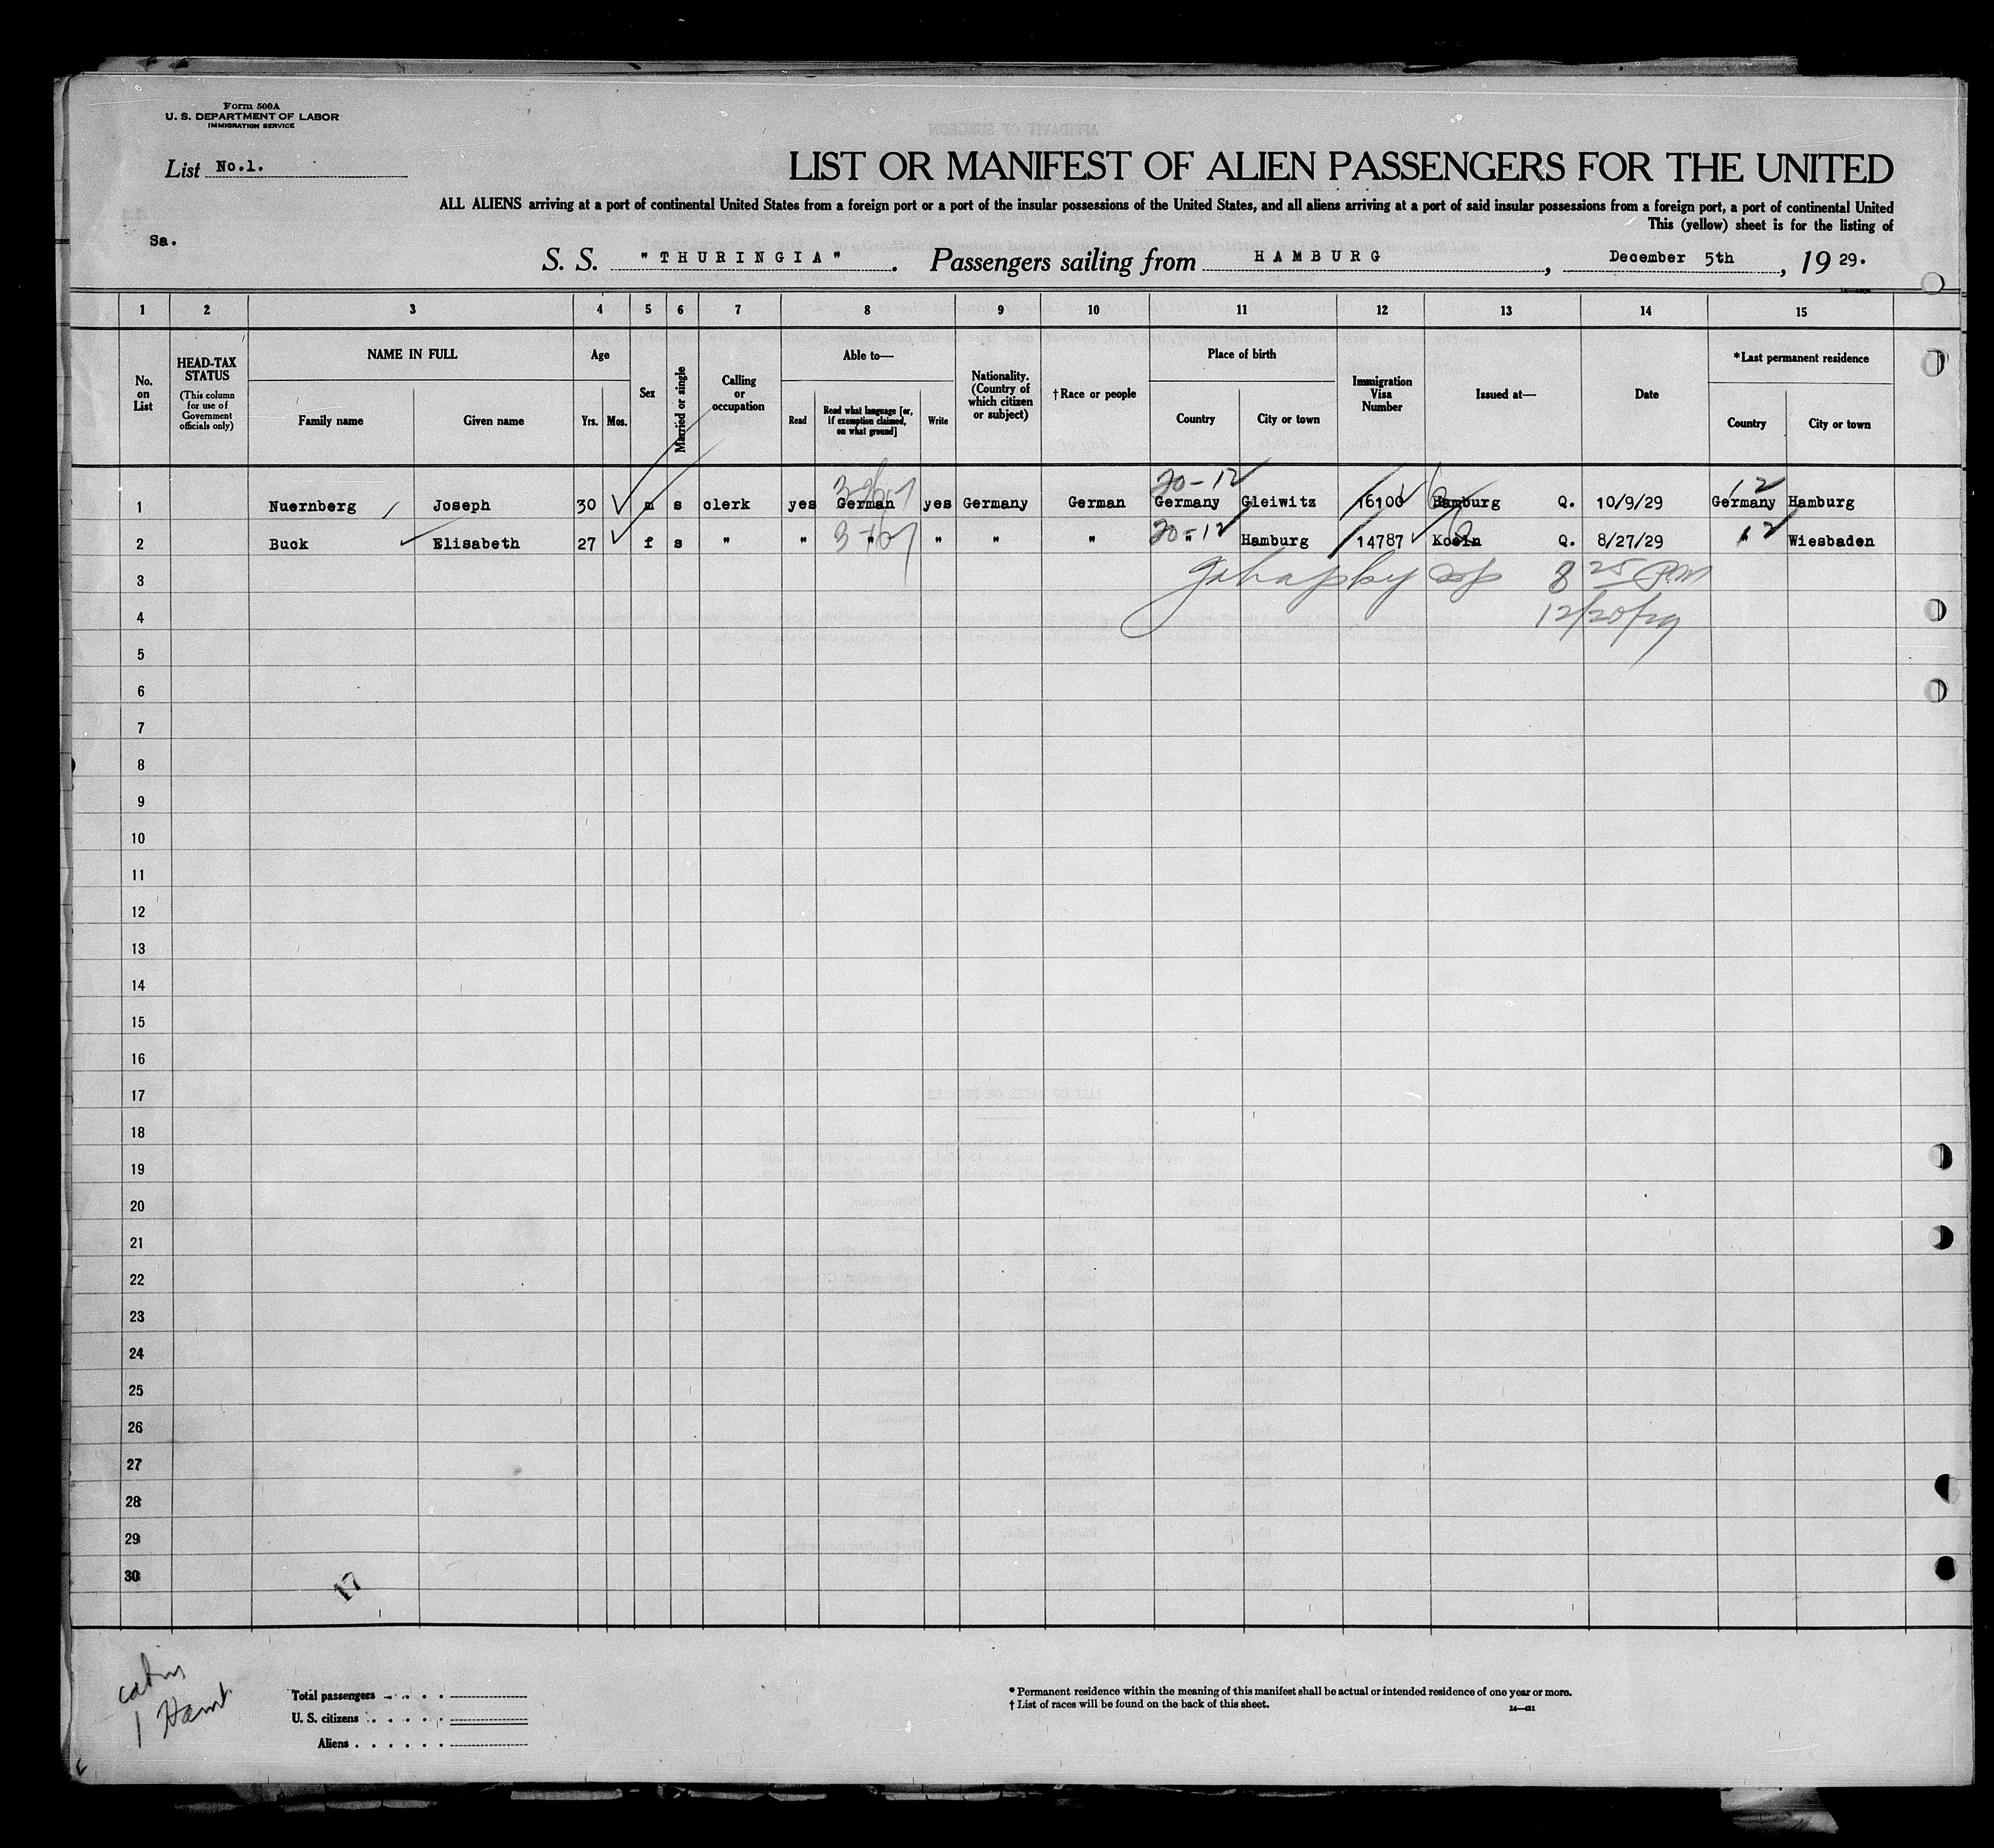 Form 500A
U. S. DEPARTMENT OF LABOR
IMMIGRATION SERVICE
List No.1.
LIST OR MANIFEST OF ALIEN PASSENGERS FOR THE UNITED
ALL ALIENS arriving at a port of continental United States from a foreign port or a port of the insular possessions of the United States, and all aliens arriving at a port of said insular possessions from a foreign port, a port of continental United
This (yellow) sheet is for the listing of
Sa.
S. S. "THURINGIA". Passengers sailing from HAMBURG, December 5th, 1929.
1 2 3 4 5 6 7 8 9 10 11 12 13 14 15
No. on List
HEAD-TAX STATUS (This column for use of Government officials only)
NAME IN FULL
Family name Given name
Age
Yrs. Mos.
Sex
Married or single
Calling or occupation
Able to—
Read Read what language [or, if exemption claimed, on what ground] Write
Nationality. (Country of which citizen or subject)
†Race or people
Place of birth
Country City or town
Immigration Visa Number
Issued at—
Date
*Last permanent residence
Country City or town
20-12 12
1 Nuernberg Joseph 30 m s clerk yes German yes Germany German Germany Gleiwitz 16100 Hamburg Q. 10/9/29 Germany Hamburg
20-12 12
2 Buck Elisabeth 27 f s " " " " " " " Hamburg 14787 Koeln Q. 8/27/29 " Wiesbaden
3 8 25 PM
4 12/20/29
5
6
7
8
9
10
11
12
13
14
15
16
17
18
19
20
21
22
23
24
25
26
27
28
29
30
17
1
Total passengers
U. S. citizens
Aliens
* Permanent residence within the meaning of this manifest shall be actual or intended residence of one year or more.
† List of races will be found on the back of this sheet.